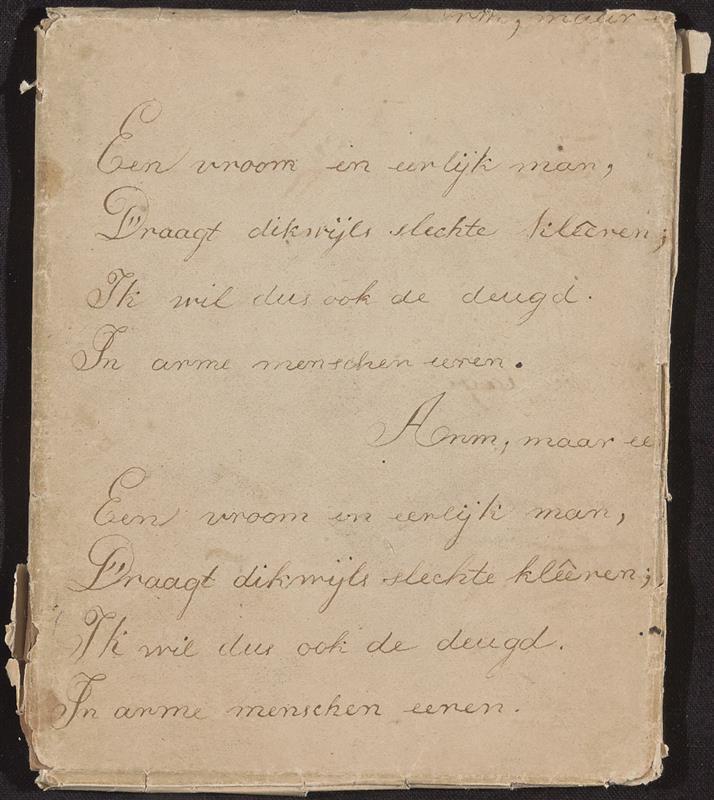 arm, maar
Een vroom en eerlijk man,
Draagt dikwijls slechte kleêren;
Ik wil dus ook de deugd.
In arme menschen eeren.
Arm, maar ee
Een vroom en eerlijk man,
Draagt dikwijls slechte kleêren;
Ik wil dus ook de deugd.
In arme menschen eeren.